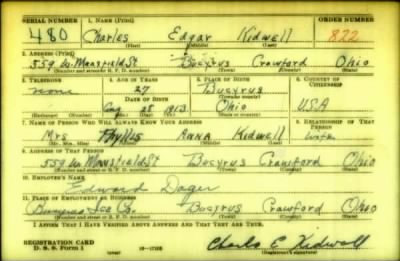 SERIAL NUMBER 1. NAME (Print) ORDER NUMBER
480 Charles Edgar Kidwell 822
(First) (Middle) (Last)
2. ADDRESS (Print)
559 W. Mansfield St Bucyrus Crawford Ohio
(Number and street or R. F. D. number) (Town) (County) (State)
3. TELEPHONE 4. AGE IN YEARS 5. PLACE OF BIRTH 6. COUNTRY OF CITIZENSHIP
none 27 Bucyrus
DATE OF BIRTH (Town or county)
Aug 28 1913 Ohio USA
7. NAME OF PERSON WHO WILL ALWAYS KNOW YOUR ADDRESS 8. RELATIONSHIP OF THAT PERSON
Mrs Phyllis Anna Kidwell wife
(Mr., Mrs., Miss) (First) (Middle) (Last)
9. ADDRESS OF THAT PERSON
559 W Mansfield St Bucyrus Crawford Ohio
(Number and street or R. F. D. number) (Town) (County) (State)
10. EMPLOYER'S NAME
Edward Dager
11. PLACE OF EMPLOYMENT OR BUSINESS
Ice Co. Bucyrus Crawford Ohio
(Number and street or R. F. D. number) (Town) (County) (State)
I AFFIRM THAT I HAVE VERIFIED ABOVE ANSWERS AND THAT THEY ARE TRUE.
REGISTRATION CARD
D. S. S. Form 1 Charles E Kidwell
(Registrant's signature)